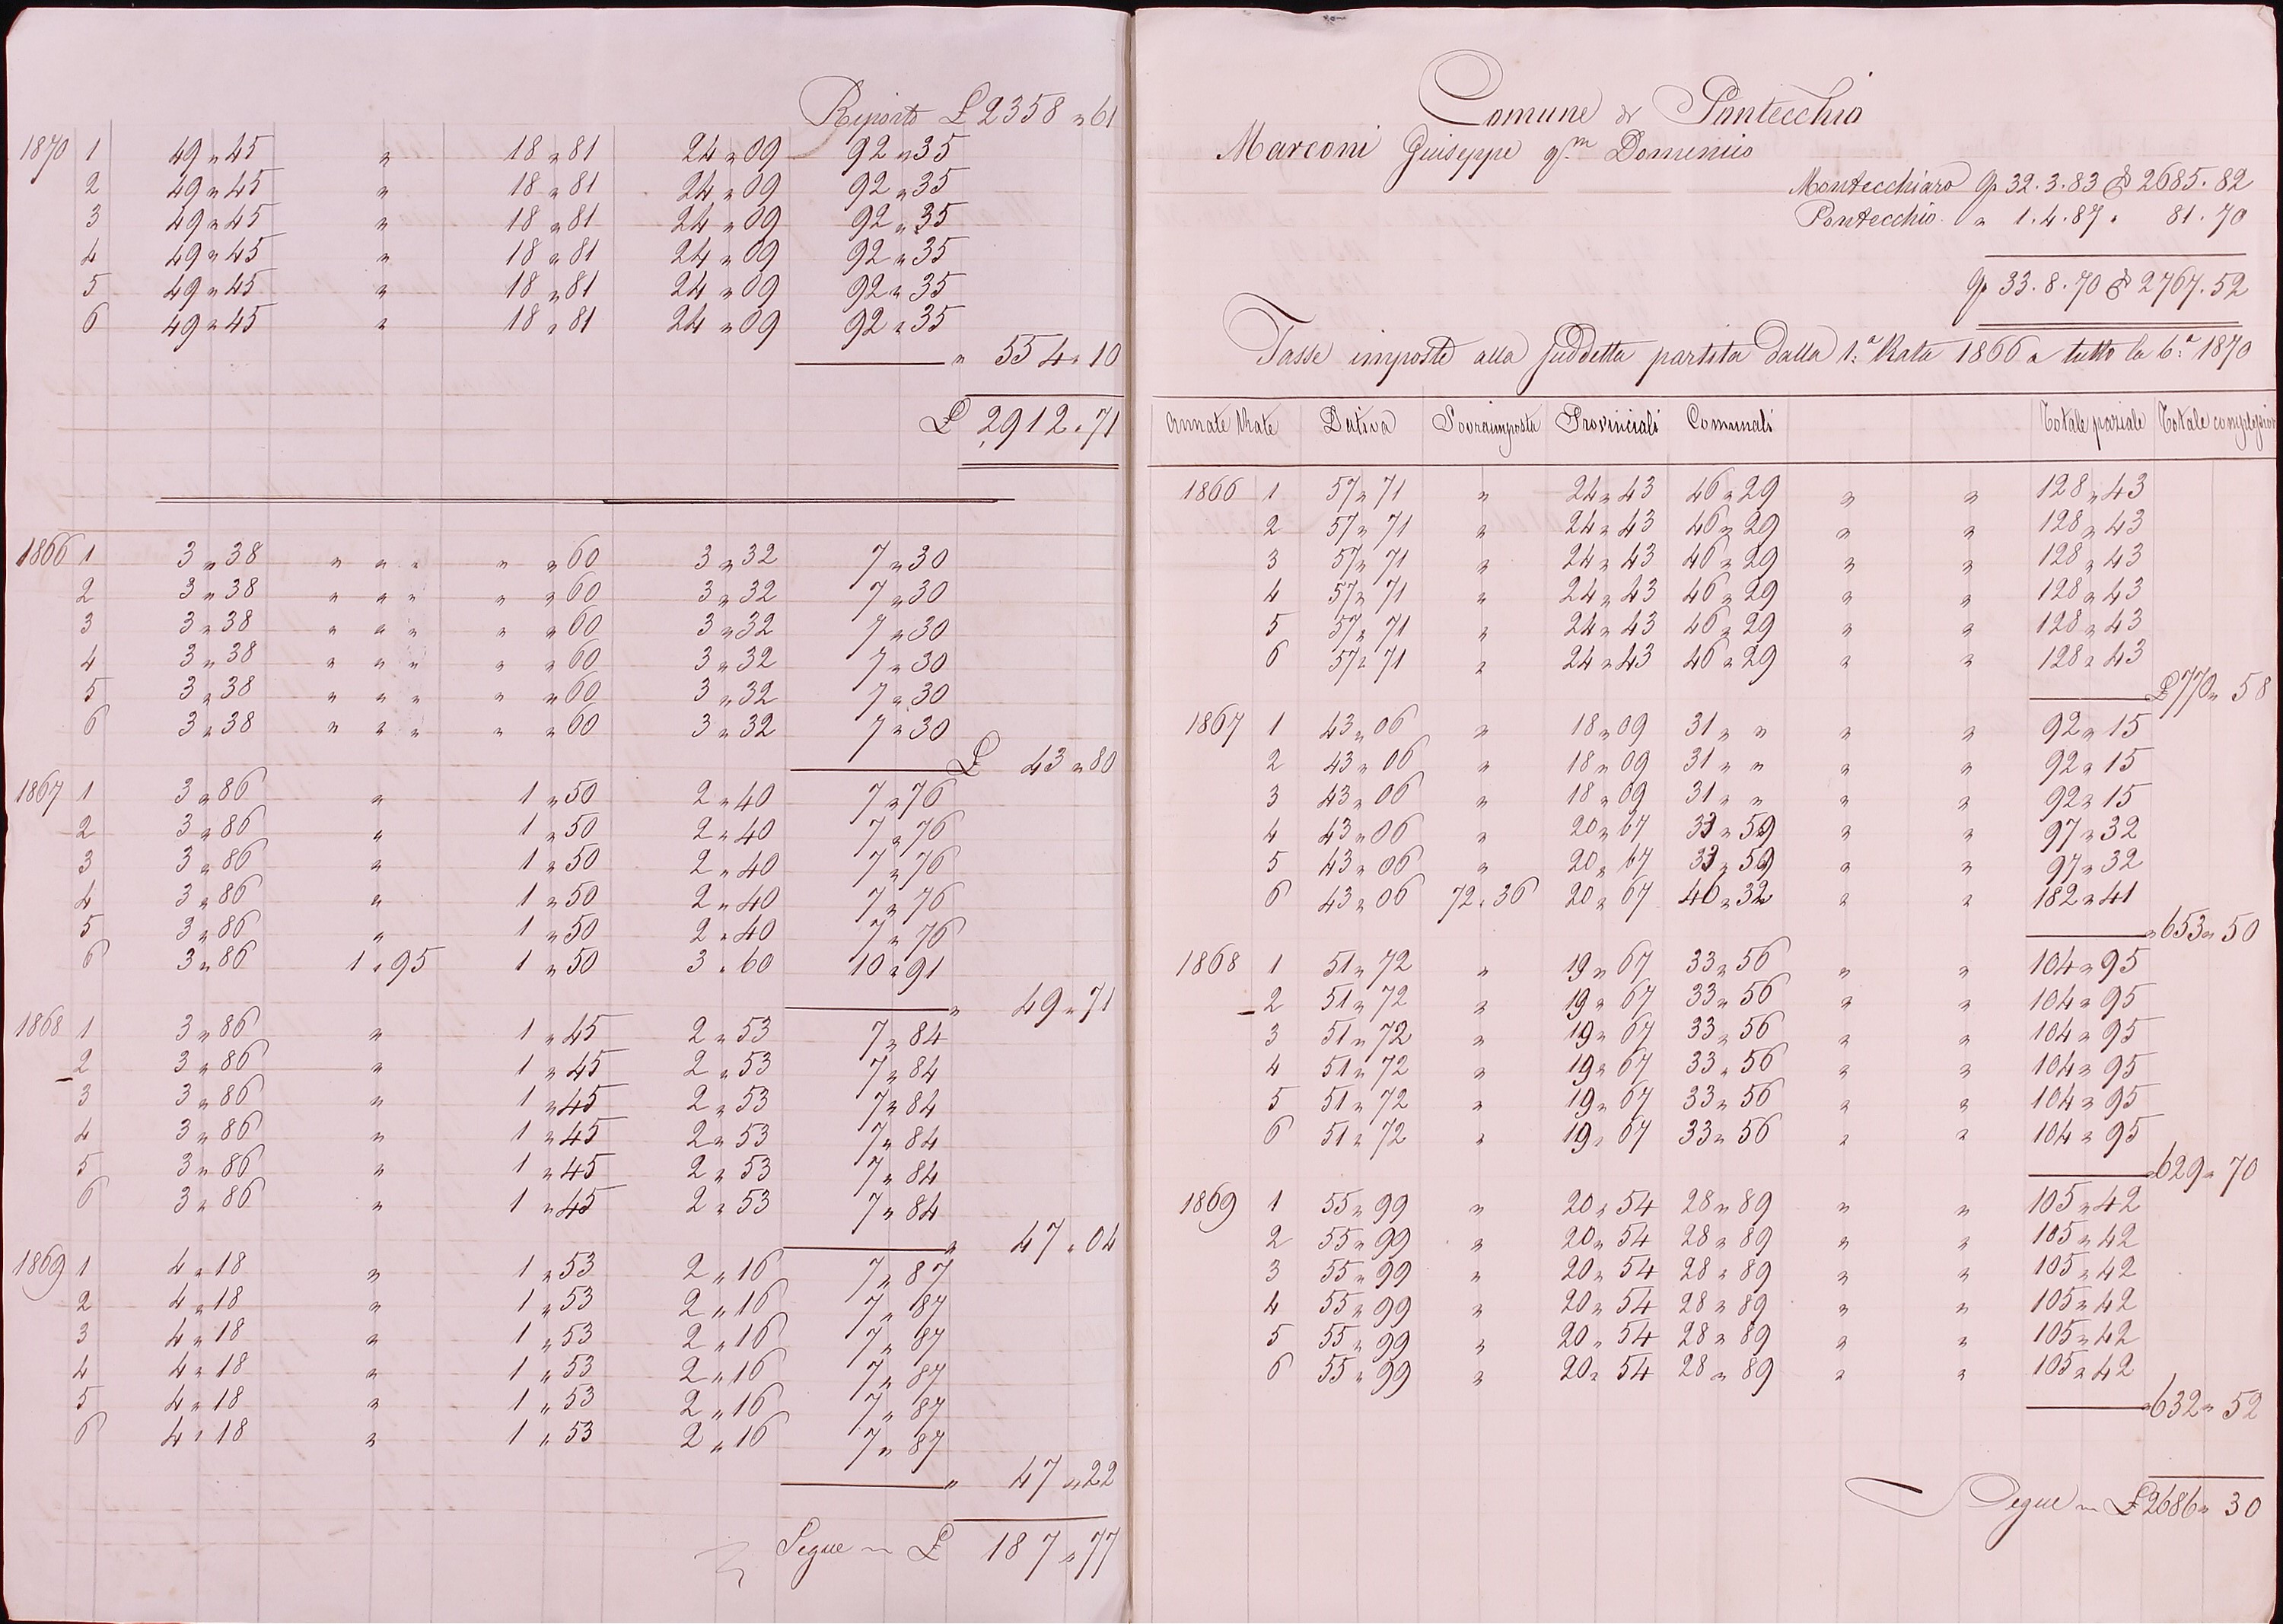 Riporto £ 2358 „ 61
1870 1 49 „ 45 „ 18 „ 81 24 „ 09 92 „ 35
2 49 „ 45 „ 18 „ 81 24 „ 09 92 „ 35
3 49 „ 45 „ 18 „ 81 24 „ 09 92 „ 35
4 49 „ 45 „ 18 „ 81 24 „ 09 92 „ 35
5 49 „ 45 „ 18 „ 81 24 „ 09 92 „ 35
6 49 „ 45 „ 18 „ 81 24 „ 09 92 „ 35
„ 554 „ 10
£ 2912 „ 71
1866 1 3 „ 38 „ „ „ „ „ 60 3 „ 32 7 „ 30
2 3 „ 38 „ „ „ „ „ 60 3 „ 32 7 „ 30
3 3 „ 38 „ „ „ „ „ 60 3 „ 32 7 „ 30
4 3 „ 38 „ „ „ „ „ 60 3 „ 32 7 „ 30
5 3 „ 38 „ „ „ „ „ 60 3 „ 32 7 „ 30
6 3 „ 38 „ „ „ „ „ 60 3 „ 32 7 „ 30
£ 43 „ 80
1867 1 3 „ 86 „ 1 „ 50 2 „ 40 7 „ 76
2 3 „ 86 „ 1 „ 50 2 „ 40 7 „ 76
3 3 „ 86 „ 1 „ 50 2 „ 40 7 „ 76
4 3 „ 86 „ 1 „ 50 2 „ 40 7 „ 76
5 3 „ 86 „ 1 „ 50 2 „ 40 7 „ 76
6 3 „ 86 1 „ 95 1 „ 50 3 „ 60 10 „ 91
„ 49 „ 71
1868 1 3 „ 86 „ 1 „ 45 2 „ 53 7 „ 84
2 3 „ 86 „ 1 „ 45 2 „ 53 7 „ 84
3 3 „ 86 „ 1 „ 45 2 „ 53 7 „ 84
4 3 „ 86 „ 1 „ 45 2 „ 53 7 „ 84
5 3 „ 86 „ 1 „ 45 2 „ 53 7 „ 84
6 3 „ 86 „ 1 „ 45 2 „ 53 7 „ 84
„ 47 „ 04
1869 1 4 „ 18 „ 1 „ 53 2 „ 16 7 „ 87
2 4 „ 18 „ 1 „ 53 2 „ 16 7 „ 87
3 4 „ 18 „ 1 „ 53 2 „ 16 7 „ 87
4 4 „ 18 „ 1 „ 53 2 „ 16 7 „ 87
5 4 „ 18 „ 1 „ 53 2 „ 16 7 „ 87
6 4 „ 18 „ 1 „ 53 2 „ 16 7 „ 87
„ 47 „ 22
Segue — £ 187 „ 77
Comune di Pontecchio
Marconi Giuseppe qm Domenico
Montecchiaro 32.3.83 2685.82
Pontecchio „ 1.4.87 „ 81.70
33.8.70 2767.52
Tasse imposte alla suddetta partita dalla 1:a Rata 1866 a tutto la 6:a 1870
Annate Rate Dativa Sovraimposta Provinciali Comunali Totale parziale Totale complessivo
1866 1 57 „ 71 „ 24 „ 43 46 „ 29 „ „ 128 „ 43
2 57 „ 71 „ 24 „ 43 46 „ 29 „ „ 128 „ 43
3 57 „ 71 „ 24 „ 43 46 „ 29 „ „ 128 „ 43
4 57 „ 71 „ 24 „ 43 46 „ 29 „ „ 128 „ 43
5 57 „ 71 „ 24 „ 43 46 „ 29 „ „ 128 „ 43
6 57 „ 71 „ 24 „ 43 46 „ 29 „ „ 128 „ 43
£ 770 „ 58
1867 1 43 „ 06 „ 18 „ 09 31 „ „ „ „ 92 „ 15
2 43 „ 06 „ 18 „ 09 31 „ „ „ „ 92 „ 15
3 43 „ 06 „ 18 „ 09 31 „ „ „ „ 92 „ 15
4 43 „ 06 „ 20 „ 67 33 „ 59 „ „ 97 „ 32
5 43 „ 06 „ 20 „ 67 33 „ 59 „ „ 97 „ 32
6 43 „ 06 72 „ 36 20 „ 67 46 „ 32 „ „ 182 „ 41
„ 653 „ 50
1868 1 51 „ 72 „ 19 „ 67 33 „ 56 „ „ 104 „ 95
2 51 „ 72 „ 19 „ 67 33 „ 56 „ „ 104 „ 95
3 51 „ 72 „ 19 „ 67 33 „ 56 „ „ 104 „ 95
4 51 „ 72 „ 19 „ 67 33 „ 56 „ „ 104 „ 95
5 51 „ 72 „ 19 „ 67 33 „ 56 „ „ 104 „ 95
6 51 „ 72 „ 19 „ 67 33 „ 56 „ „ 104 „ 95
„ 629 „ 70
1869 1 55 „ 99 „ 20 „ 54 28 „ 89 „ „ 105 „ 42
2 55 „ 99 „ 20 „ 54 28 „ 89 „ „ 105 „ 42
3 55 „ 99 „ 20 „ 54 28 „ 89 „ „ 105 „ 42
4 55 „ 99 „ 20 „ 54 28 „ 89 „ „ 105 „ 42
5 55 „ 99 „ 20 „ 54 28 „ 89 „ „ 105 „ 42
6 55 „ 99 „ 20 „ 54 28 „ 89 „ „ 105 „ 42
„ 632 „ 52
Segue — £ 2686 „ 30